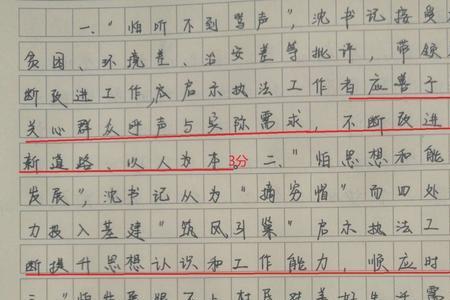 一、“怕听不到骂声”，沈书记接受
贫困、环境差、治安差等批评，带领
断改进工作，启示执法工作者应善于
关心群众呼声与实际需求，不断改进
新道路、以人为本。3分二、“怕思想和能
发展”，沈书记从为“摘穷帽”而四处
力投入基建“筑凤引巢”启示执法工
断提升思想认识和工作能力，顺应时